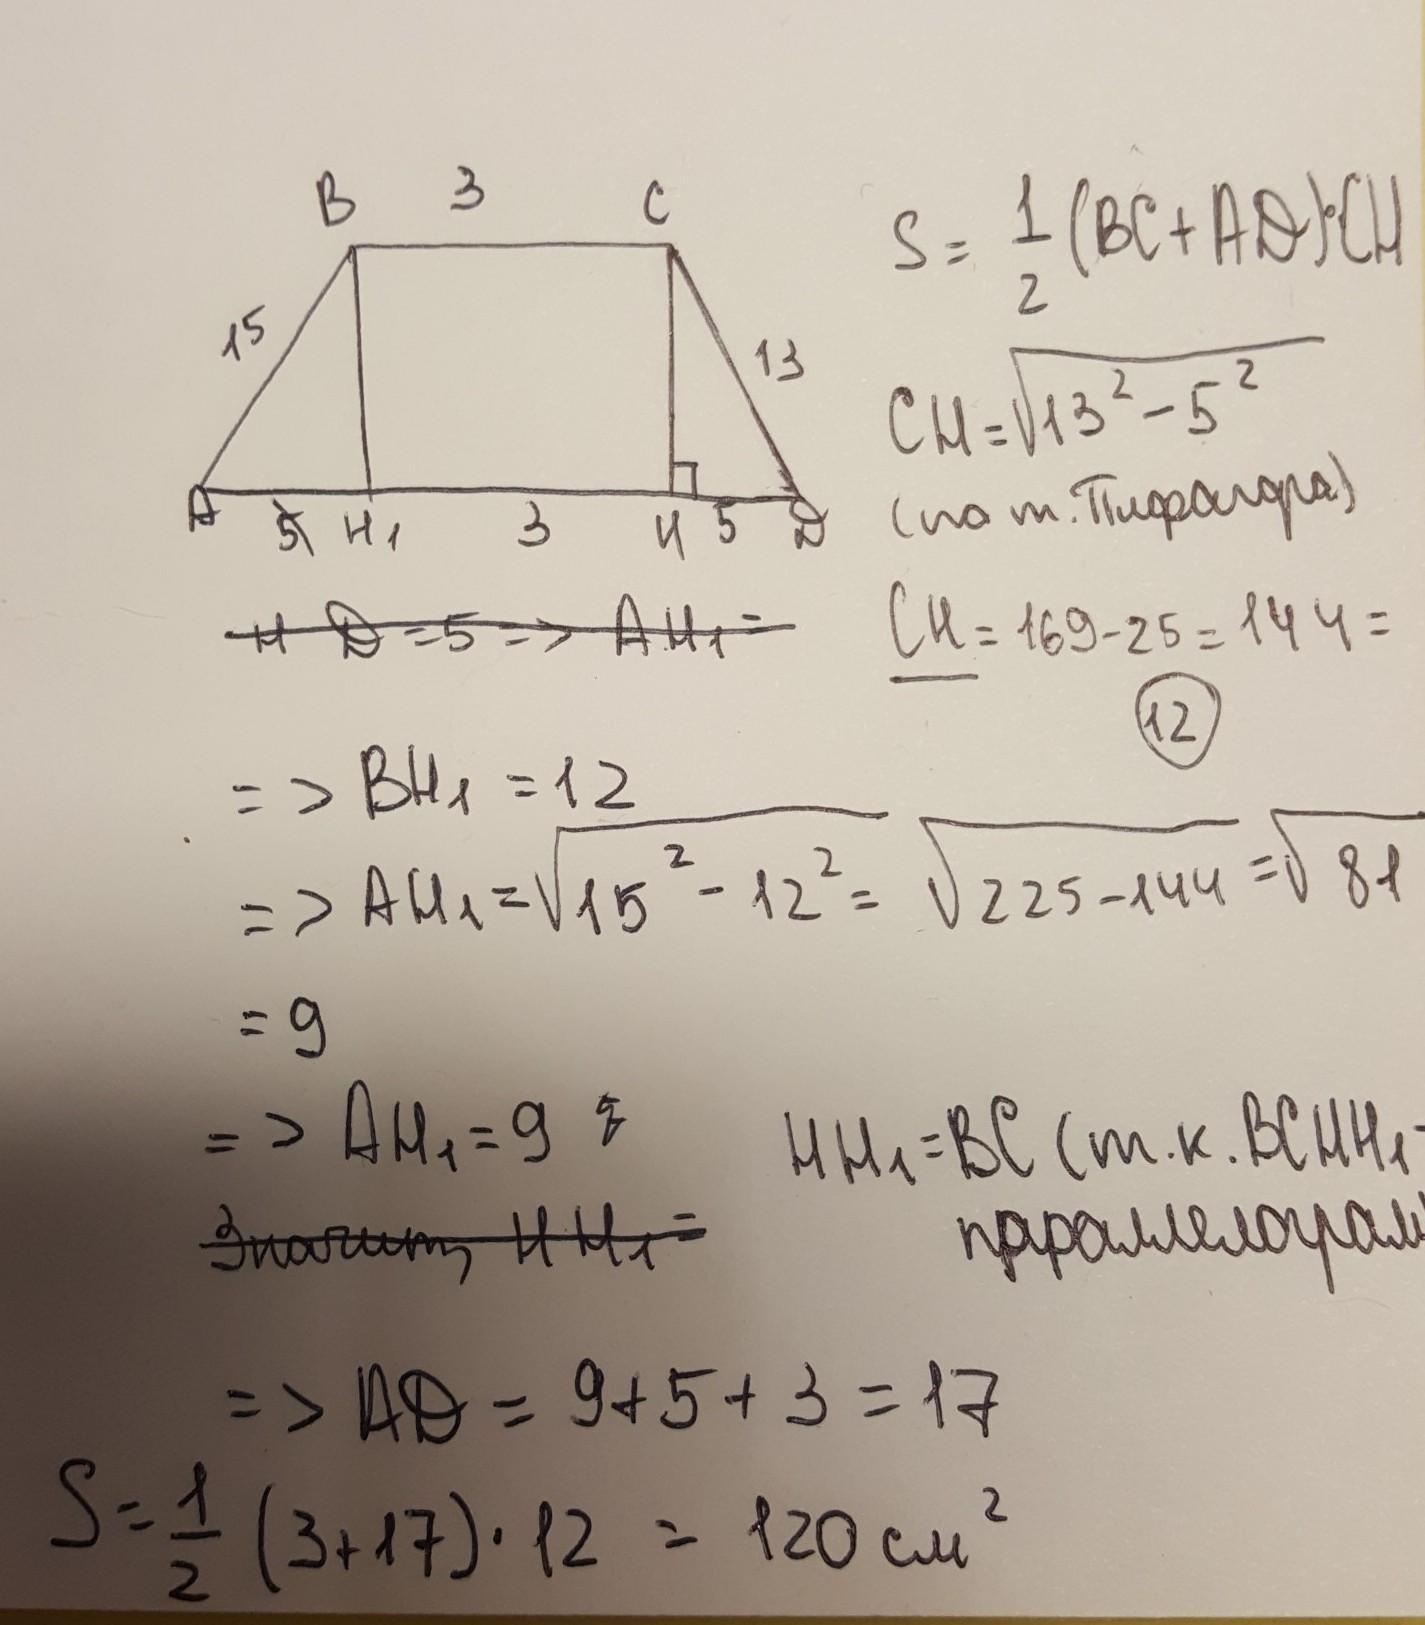 B 3 C
15
13
A 5 H₁ 3 H 5 D
S = 1/2 (BC + AD)·CH
CH = √13² - 5²
(по т. Пифагора)
CH = 169 - 25 = 144 =
12
H D = 5 => AH₁ =
=> BH₁ = 12
=> AH₁ = √15² - 12² = √225 - 144 = √81
= 9
=> AH₁ = 9
HH₁ = BC (т.к. BCHH₁ -
параллелограм
Значит, HH₁ =
=> AD = 9 + 5 + 3 = 17
S = 1/2 (3 + 17) · 12 = 120 см²